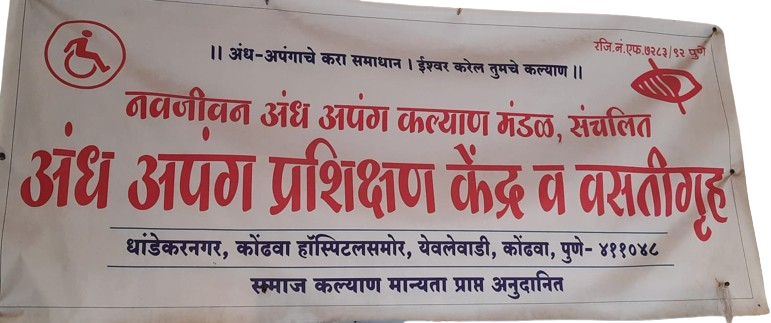 रजि.नं.एफ.७२८३/९२ पुणे
।। अंध-अपंगाचे करा समाधान । ईश्वर करेल तुमचे कल्याण ।।
नवजीवन अंध अपंग कल्याण मंडळ, संचलित
अंध अपंग प्रशिक्षण केंद्र व वसतीगृह
धांडेकरनगर, कोंढवा हॉस्पिटलसमोर, येवलेवाडी, कोंढवा, पुणे- ४११०४८
समाज कल्याण मान्यता प्राप्त अनुदानित